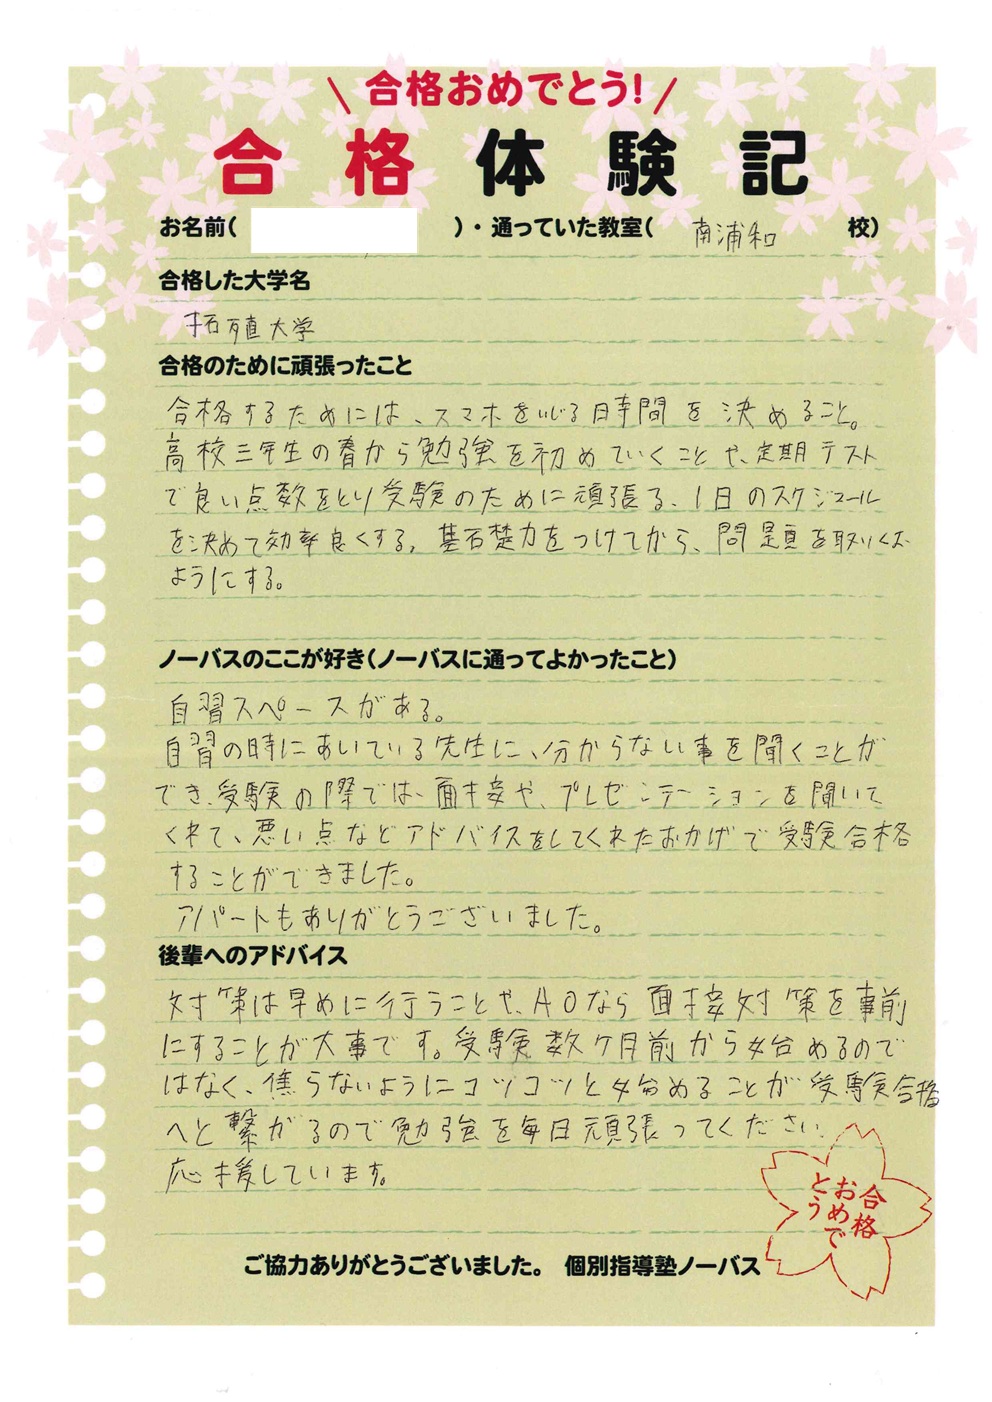 合格おめでとう!
合格体験記
お名前( )・通っていた教室( 南浦和 校)
合格した大学名
拓殖大学
合格のために頑張ったこと
合格するためには、スマホをいじる時間を決めること。
高校三年生の春から勉強を初めていくことや、定期テスト
で良い点数をとり受験のために頑張る、1日のスケジュール
を決めて効率良くする。基礎力をつけてから、問題を取りくむ
ようにする。
ノーバスのここが好き(ノーバスに通ってよかったこと)
自習スペースがある。
自習の時にあいている先生に、分からない事を聞くことが
でき、受験の際では、面接や、プレゼンテーションを聞いて
くれて、悪い点などアドバイスをしてくれたおかげで受験合格
することができました。
アパートもありがとうございました。
後輩へのアドバイス
対策は早めに行うことや、AOなら面接対策を事前
にすることが大事です。受験数ケ月前から始めるので
はなく、焦らないようにコツコツと始めることが受験合格
へと繋がるので勉強を毎日頑張ってください。
応援しています。
合格
おめで
とう
ご協力ありがとうございました。 個別指導塾ノーバス